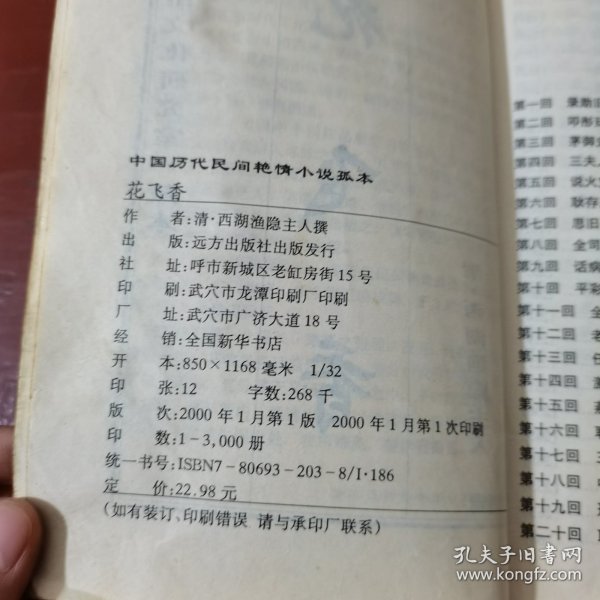 中国历代民间艳情小说孤本
花飞香
作 者:清·西湖渔隐主人撰
出 版:远方出版社出版发行
社 址:呼市新城区老缸房街15号
印 刷:武穴市龙潭印刷厂印刷
厂 址:武穴市广济大道18号
经 销:全国新华书店
开 本:850×1168毫米 1/32
印 张:12 字数:268千
版 次:2000年1月第1版 2000年1月第1次印刷
印 数:1-3,000册
统一书号:ISBN7-80693-203-8/I·186
定 价:22.98元
(如有装订、印刷错误 请与承印厂联系)
第一回
第二回
第三回 茅御
第四回 三夫
第五回 说火
第六回 耿存
第七回 思旧
第八回 金司
第九回 话病
第十回 平彩
第十一回 金
第十二回 老
第十三回
第十四回
第十五回
第十六回
第十七回
第十八回
第十九回
第二十回
孔夫子旧书网
www.kongfz.com